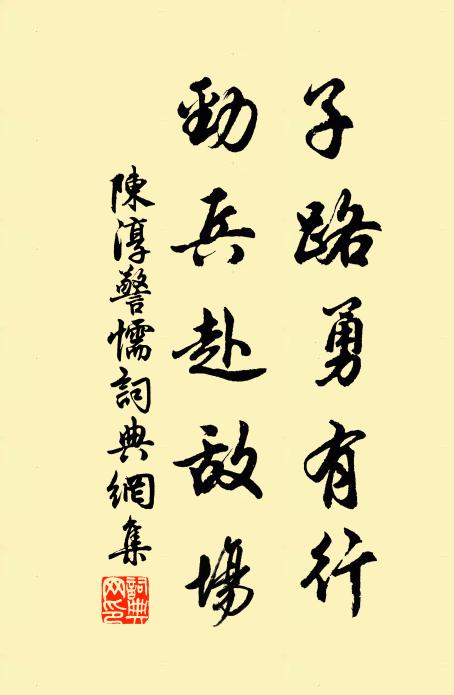 子路勇有行
勁兵赴敌場
陳淳警懦詞典網集
詞典网印